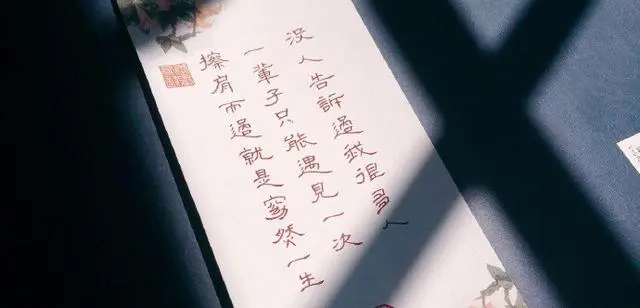 没人告訴過我很多人
一輩子只能遇見一次
擦肩而過就是然一生